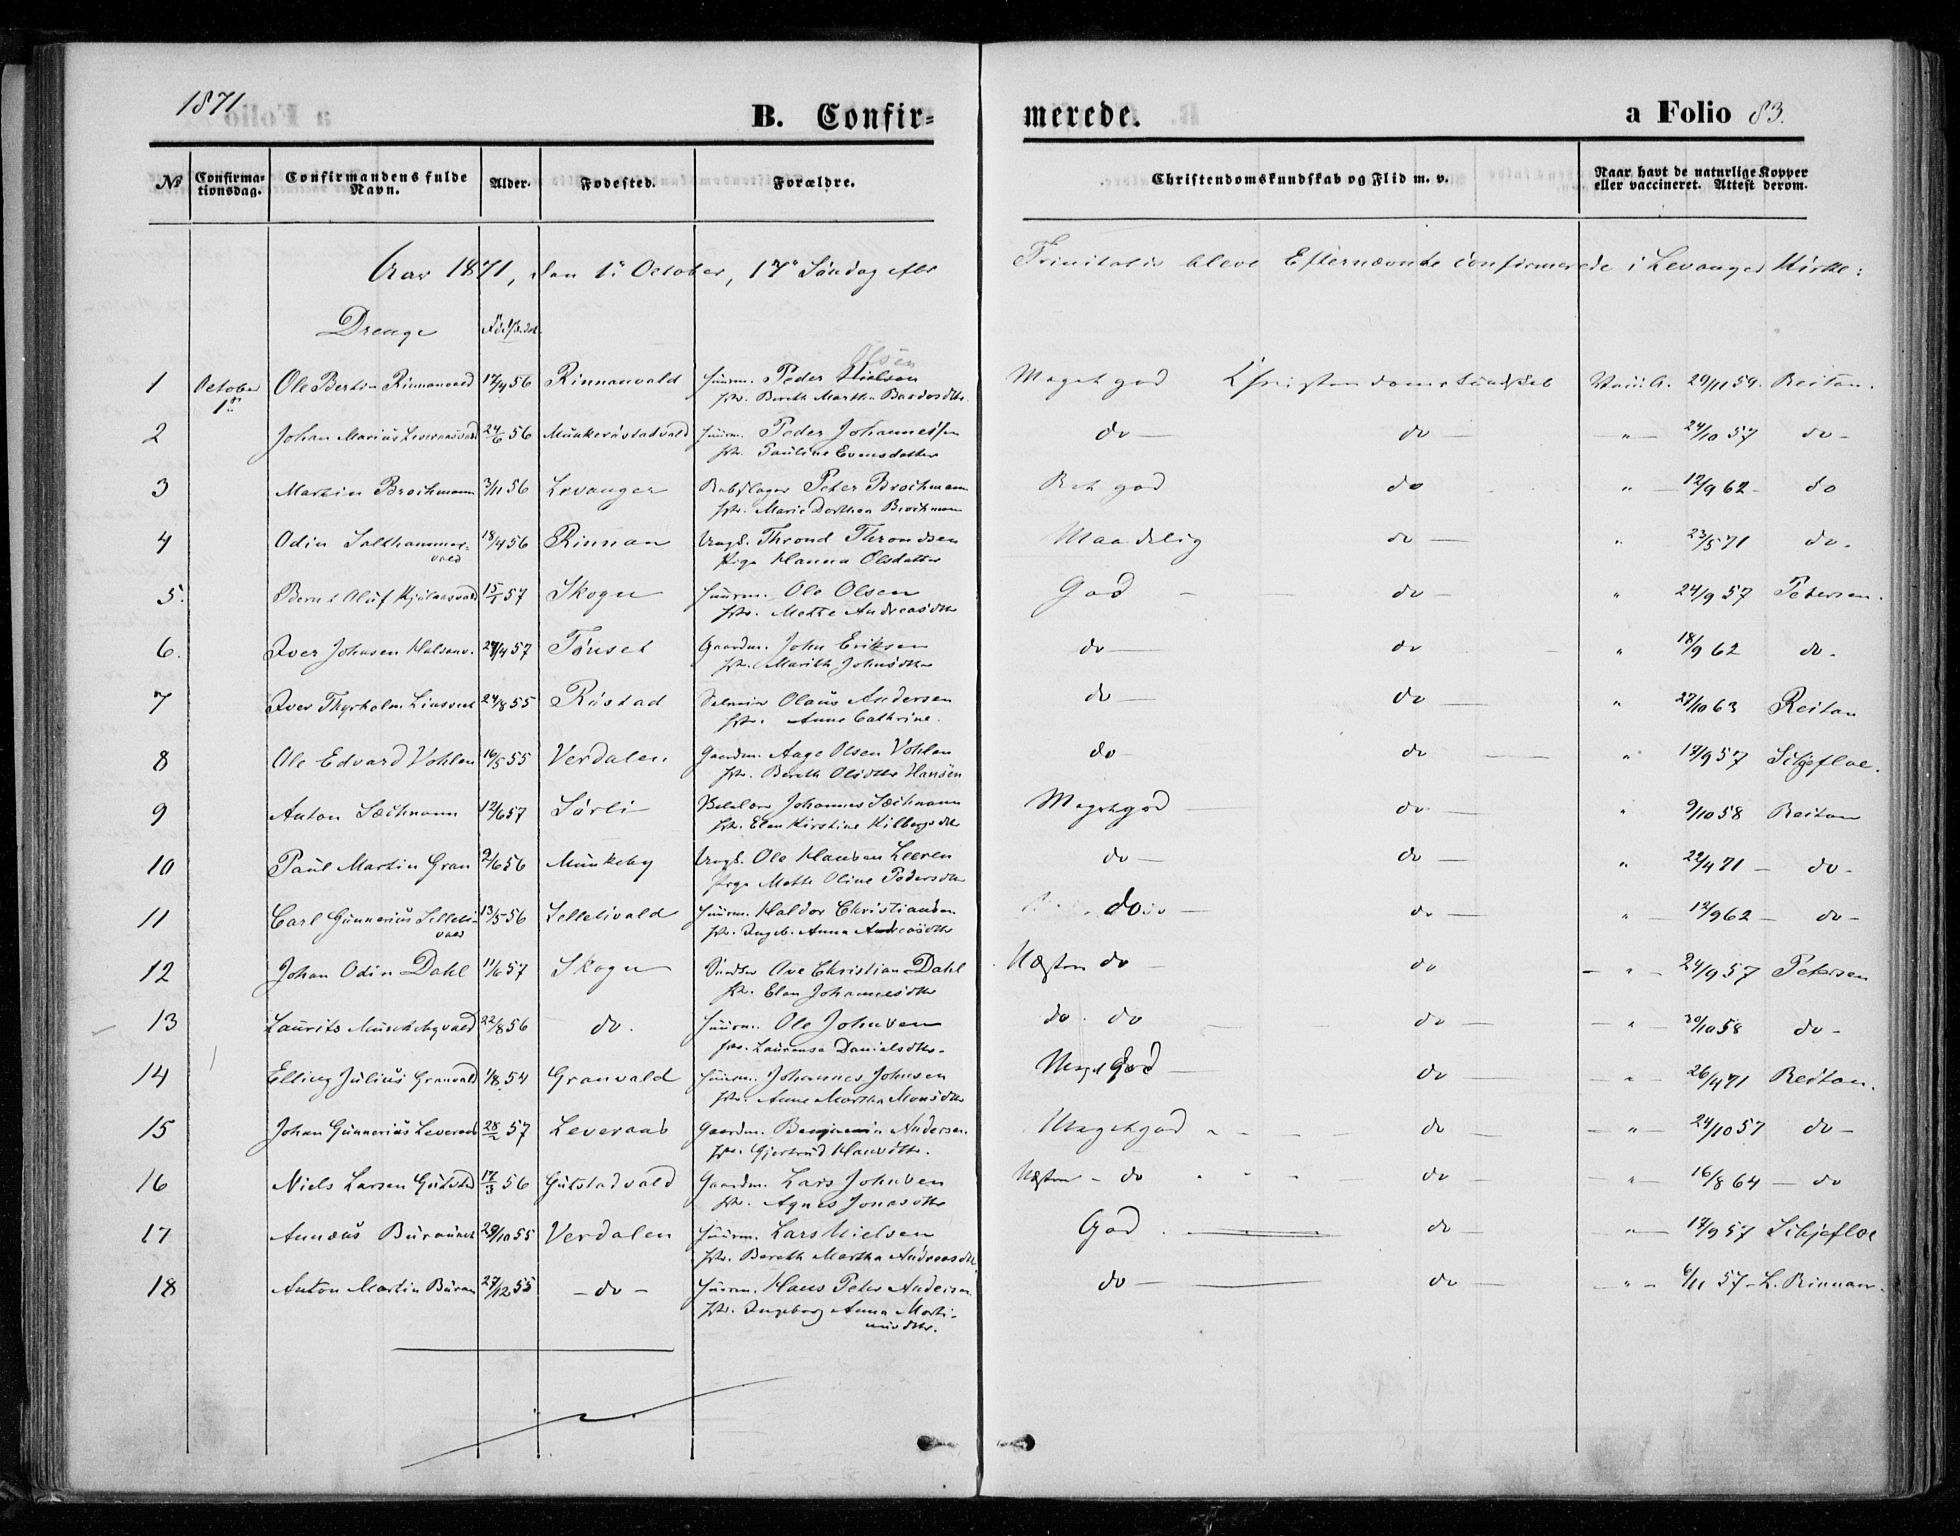 1871
B. Confirmerede.
a Folio 83.
No Confirmationsdag. Confirmandens fulde Navn. Alder. Fødested. Forældre. Christendomskundskab og Flid m. v. Naar havt de naturlige Kopper eller vaccineret. Attest derom.
Aar 1871, den 1ste October, 17de Søndag efter Trinitatis bleve Efternævnte confirmerede i Levanger Kirke:
Drenge
1 October 1ste Ole Bertin Rinnanvald 17/4 56 Rinnanvald Huusm. Peder Nielsen Olsen
Meget god Christendomskundskab 29/11 59. Reitan.
Htr. Bereth Martha Bardosdtr.
2 Johan Marius Leveraasvald 24/6 56 Munkerøstadvald Huusm. Peder Johannessen do do " 24/10 57 do
Htr. Pauline Evensdatter
3 Martin Brochmann 3/11 56 Levanger Rebslager Peter Brochmann Ret god do " 12/9 62 do
Htr. Marie Dorthea Brochmann
4 Odin Salthammervald 18/4 56 Rinnan Ungk. Thrond Throndsen Maadelig do " 23/5 71 do.
Pige Hanna Olsdatter
5. Bernt Oluf 15/1 57 Skogn Huusm. Ole Olsen God do " 24/9 57 Petersen.
Htr. Mette Andreasdtr
6. Iver Johnsen Halsanv. 27/4 57 Tønset Gaardm. John Eriksen do do " 18/9 62 do.
Htr. Marith Johnsdtr
7 Iver Thyrholm 24/8 55 Røstad Olaus Andersen do do " 27/10 63 Reitan
Htr. Anne Cathrine.
8 Ole Edvard Vohlen 16/5 55 Verdalen Gaardm. Aage Olsen Vohlen do do " 17/9 57
Htr. Bereth Olsdtr Hansen
9 Anton 12/6 57 Sørli Johannes Meget god do " 9/10 58 Reitan
Htr. Elen Kirstine
10 Paul Martin Gran 2/6 56 Munkeby Ungk. Ole Hansen Leeren do do " 22/4 71 do.
Pige Mette Oline Pedersdtr
11 Carl Gunnerius 13/5 56 Huusm. Haldor Christiansen do do " 12/9 62 do
Htr. Ingeb. Anna Andreasdtr
12 Johan Odin Dahl 11/6 57 Skogn Ove Christian Dahl Næsten do do " 24/9 57 Petersen
Htr. Elen Johannesdtr
13 Laurits 22/8 56 do. Huusm. Ole Johnsen do do do " 30/10 58 do
Htr. Laurense Danielsdtr.
14 Elling Julius Granvald 1/8 54 Granvald Huusm. Johannes Johnsen Meget God do " 26/4 71 Reitan.
Htr. Anne Martha Monsdtr
15 Johan Gunnerius Leveraas 28/2 57 Leveraas Gaardm. Benjamin Andersen Meget god do " 24/10 57 do
Htr. Gjertrud Hansdtr.
16 Niels Larsen Gulstad 17/3 56 Gulstadvald Gaardm. Lars Johnsen Næsten do do " 16/8 64 do
Htr. Agnes Jonasdtr
17 Annæus 29/10 55 Verdalen Huusm. Lars Nielsen God do " 17/9 57
Htr. Bereth Martha Andreasdtr
18 Anton Martin Buran 27/12 55 do Huusm. Hans Peter Andersen do do " 6/11 57 L. Rinnan.
Htr. Ingeborg Anna Martinusdtr.